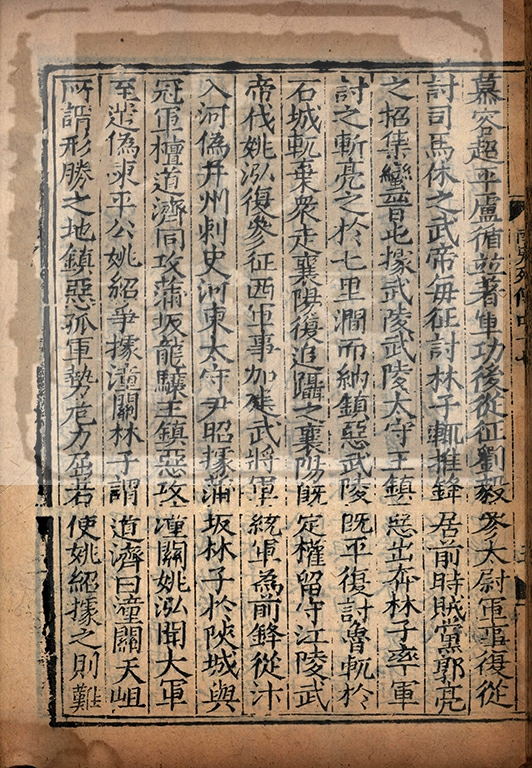 慕容超平盧循並著軍功後從征劉毅參大尉軍事復從
討司馬休之武帝每征討林子輒推鋒居前時賊黨郭亮
之招集蠻晉屯據武陵武陵太守王鎮惡出奔林子率軍
討之斬亮之於七里澗而納鎮惡武陵既平復討魯軌於
石城軌棄衆走襄陽復追躡之襄陽既定權留守江陵武
帝伐姚泓復參征西軍事加建武將軍統軍為前鋒從汴
入河偽并州刺史河東太守尹昭據蒲坂林子於陝城與
冠軍檀道濟同攻蒲坂龍驤王鎮惡攻潼關姚泓聞大軍
至遣偽東平公姚紹爭據潼關林子謂道濟曰潼關天岨
所謂形勝之地鎮惡孤軍勢危力屈若使姚紹據之則難